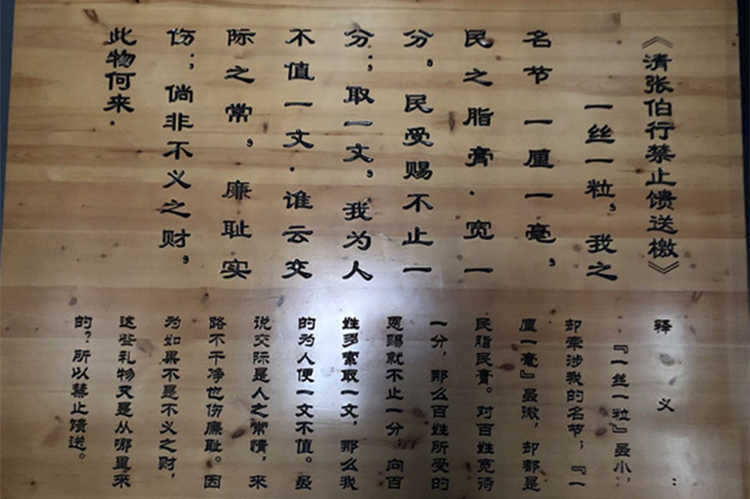 《清张伯行禁止馈送檄》
一丝一粒，我之
名节一厘一毫，
民之脂膏．宽一
分，民受赐不止一
分；取一文，我为人
不值一文．谁云交
际之常，廉耻实
伤；倘非不义之财，
此物何来．
释义：
『一丝一粒』虽小，
却牵涉我的名节；『一
厘一毫』虽微，却都是
民脂民膏。对百姓宽待
一分，那么百姓所受的
恩赐就不止一分；向百
姓多索取一文，那么我
的为人便一文不值。虽
说交际是人之常情，来
路不干净也伤廉耻。因
为如果不是不义之财，
这些礼物又是从哪里来
的？所以禁止馈送。